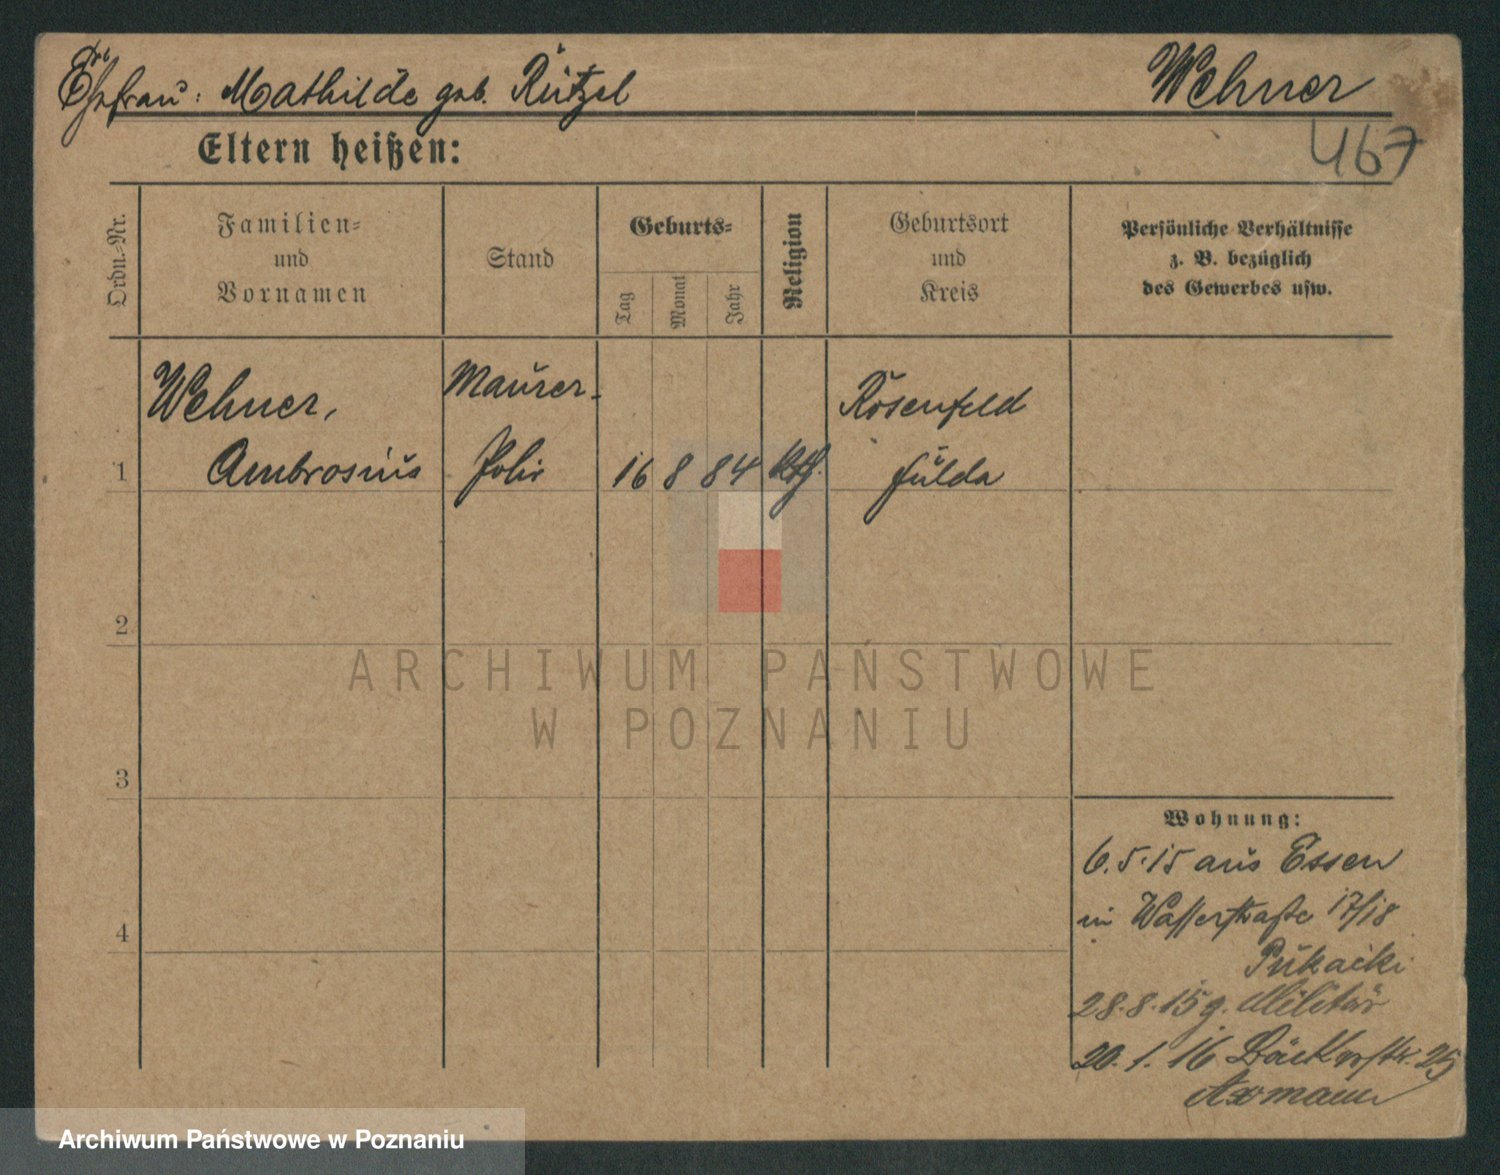 Ehefrau: Mathilde geb. Rützel
Wehner
467
Eltern heißen:
Ordn.-Nr.
Familien-
und
Vornamen
Stand
Geburts-
Tag
Monat
Jahr
Religion
Geburtsort
und
Kreis
Persönliche Verhältnisse
z. B. bezüglich
des Gewerbes usw.
Wehner,
Ambrosius
Maurer-
Polir
1
16 8 84 kth.
Rosenfeld
Fulda
2
3
4
Wohnung:
6.5.15 aus Essen
in Wasserstraße 17/18
Pukacki
28.8.15 z. Militär
20.1.16 Bäckerstr. 25
Axmann
ARCHIWUM PAŃSTWOWE
W POZNANIU
Archiwum Państwowe w Poznaniu